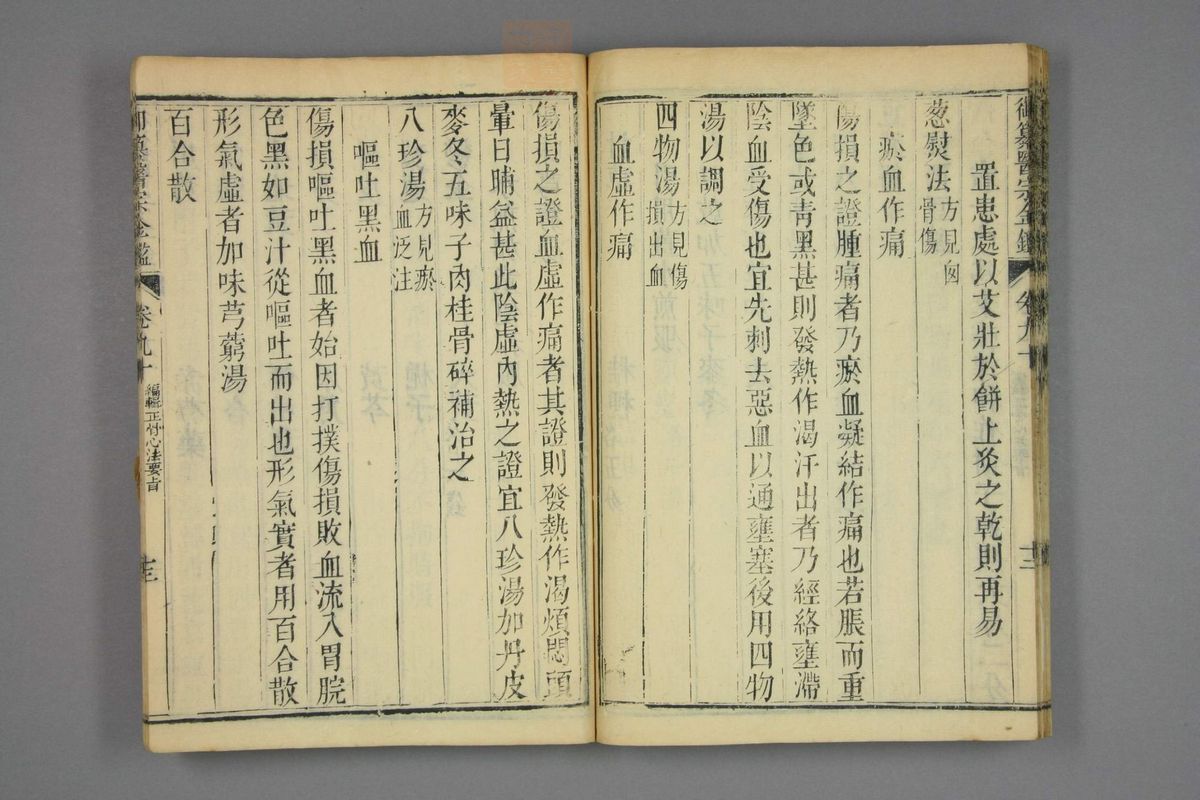 御纂醫宗金鑑 卷九十 十三
置患處以艾壯於餅上灸之乾則再易
葱熨法方見㐫骨傷
瘀血作痛
傷損之證腫痛者乃瘀血凝結作痛也若脹而重
墜色或青黑甚則發熱作渴汗出者乃經絡壅滯
陰血受傷也宜先刺去惡血以通壅塞後用四物
湯以調之
四物湯方見傷損出血
血虛作痛
傷損之證血虛作痛者其證則發熱作渴煩悶頭
暈日晡益甚此陰虛內熱之證宜八珍湯加丹皮
麥冬五味子肉桂骨碎補治之
八珍湯方見瘀血泛注
嘔吐黑血
傷損嘔吐黑血者始因打撲傷損敗血流入胃脘
色黑如豆汁從嘔吐而出也形氣實者用百合散
形氣虛者加味芎藭湯
百合散
御纂醫宗金鑑 卷九十 編輯正骨心法要旨 十三